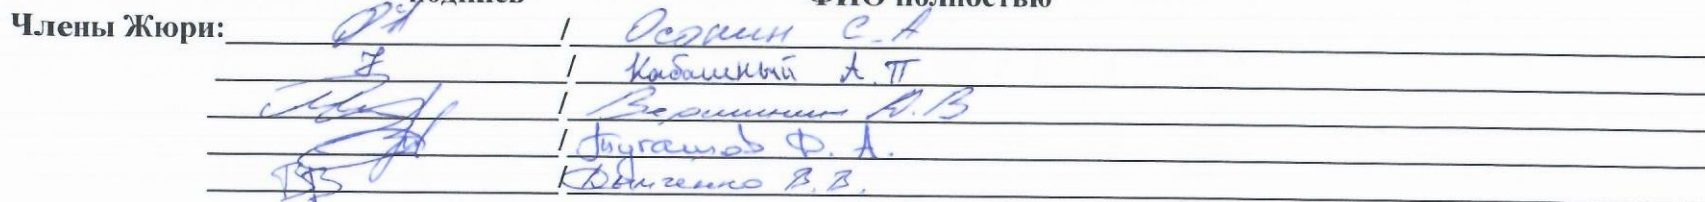 подпись ФИО полностью
Члены Жюри: / Осокин С.А
/ Кабашный А.П
/ Вершинин А.В
/ Пугашов Ф. А.
/ Дымченко В.В.